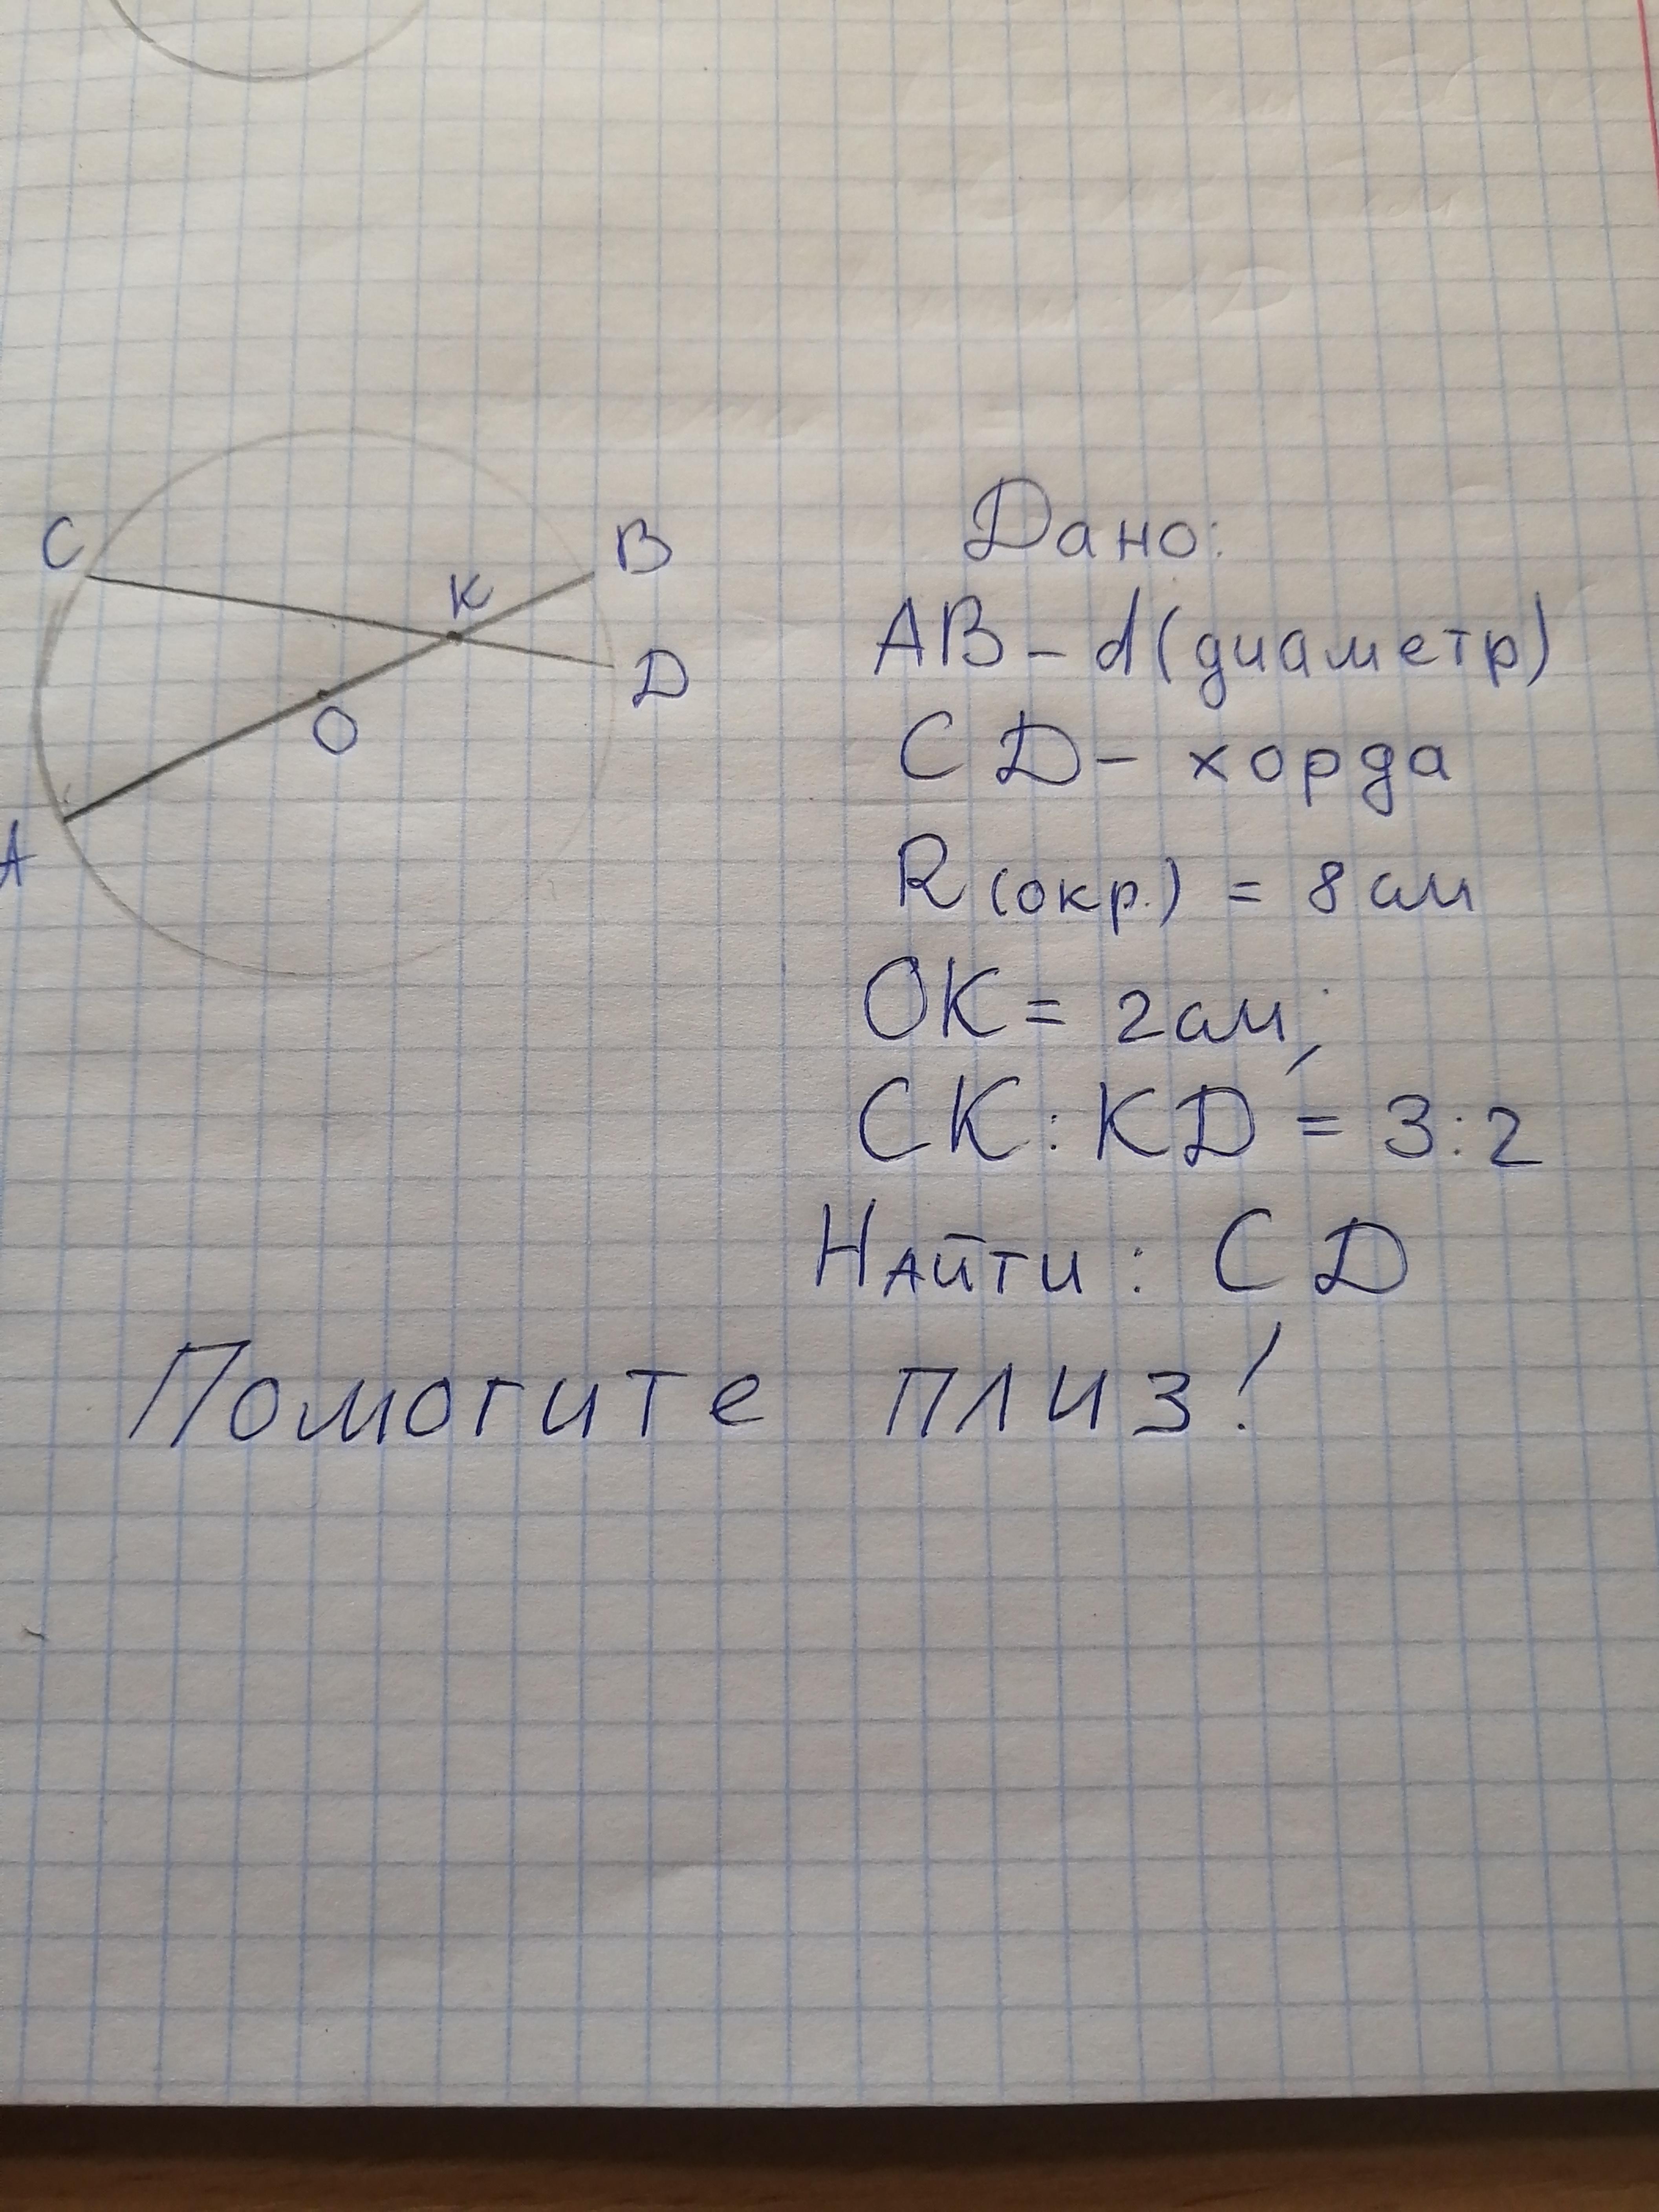 C
B
K
D
O
A
Дано:
AB - d (диаметр)
CD - хорда
R (окр.) = 8 см
OK = 2 см;
CK : KD = 3:2
Найти: CD
Помогите плиз!